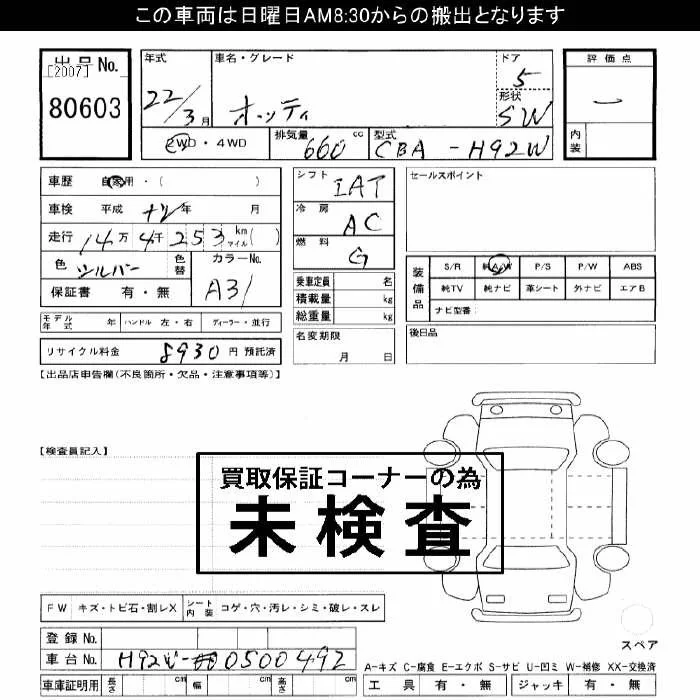 この車両は日曜日AM8:30からの搬出となります
出品No.
[2007]
80603
年式
22/3月
車名・グレード
オッティ
ドア
5
形状
SW
評価点
一
内装
2WD・4WD
排気量
660 cc
型式
CBA-H92W
車歴 自家用・( )
車検 平成 年 月
走行 14万4千253 km マイル( )
色 シルバー
色替
カラーNo.
A31
保証書 有・無
シフト
IAT
冷房
AC
燃料
G
セールスポイント
乗車定員 名
積載量 kg
総重量 kg
装備品
S/R 純A/W P/S P/W ABS
純TV 純ナビ 革シート 外ナビ エアB
ナビ型番:
モデル年式 年 ハンドル 左・右 ディーラー・並行
名変期限
月 日
後日品
リサイクル料金 8930 円 預託済
【出品店申告欄(不良箇所・欠品・注意事項等)】
【検査員記入】
買取保証コーナーの為
未検査
FW キズ・トビ石・割レX シート内装 コゲ・穴・汚レ・シミ・破レ・スレ
スペア
登録No.
車台No. H92W-0500492
車庫証明用 長さ cm 幅 cm 高さ cm
A-キズ C-腐食 E-エクボ S-サビ U-凹ミ W-補修 XX-交換済
工具 有・無 ジャッキ 有・無